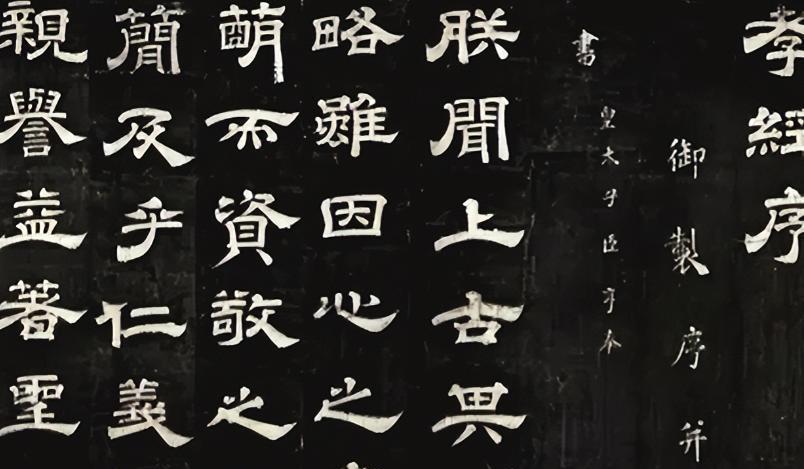 孝經序
御製序并
書 皇太子臣亨奉
朕聞上古其
略雖因心之
萌而資敬之
簡及乎仁義
親譽益著聖